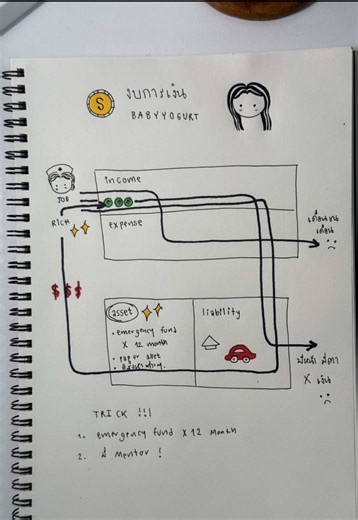 S
งบการเงิน
BABYYOGURT
income
JOB
RICH
expense
เดือนชน
เดือน
$ $ $
asset
liability
• emergency fund
x 12 month
• paper asset
มีหน้า มีตา
X เงิน
TRICK !!!
1. emergency fund x 12 month
2. มี Mentor !